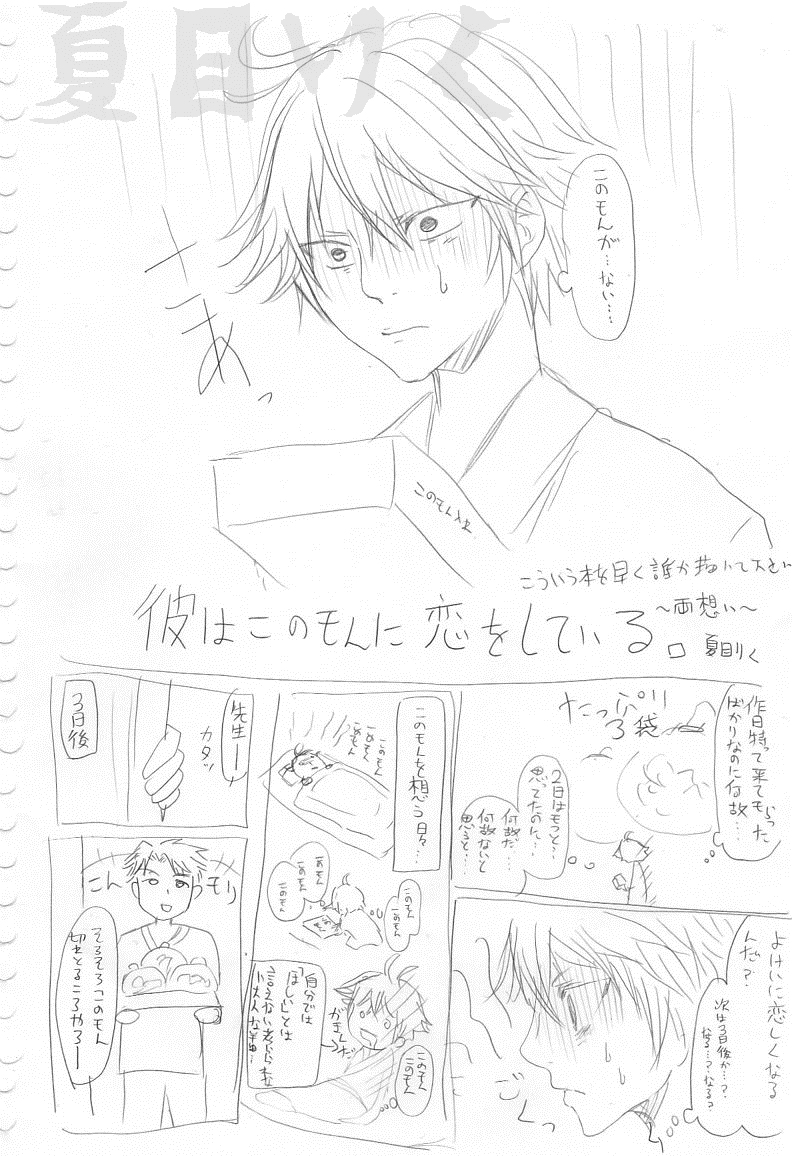 夏目りく
このもんが…ない…
さあっ
このもん入れ
こういう本を早く誰か描いて下さい
彼はこのもんに恋をしている。
～両想い～
夏目りく
昨日持って来てもらった
ばかりなのに何故…
たっぷり
3袋
2日はもつと…
思ってたのに…
何故だ…
何故ないと
思うと…
よけいに恋しくなる
んだ？
次は3日後か…？
なる…？なる？
ごくっ
このもんを想う日々…
このもん
このもん
このもん
このもん
このもん
このもん
このもん
このもん
自分では
「ほしい」とは
言えない
大人な単曲…
このもん
このもん
3日後
先生ー
カタッ
こんモリ
そろそろこのもん
切れとるころやろー